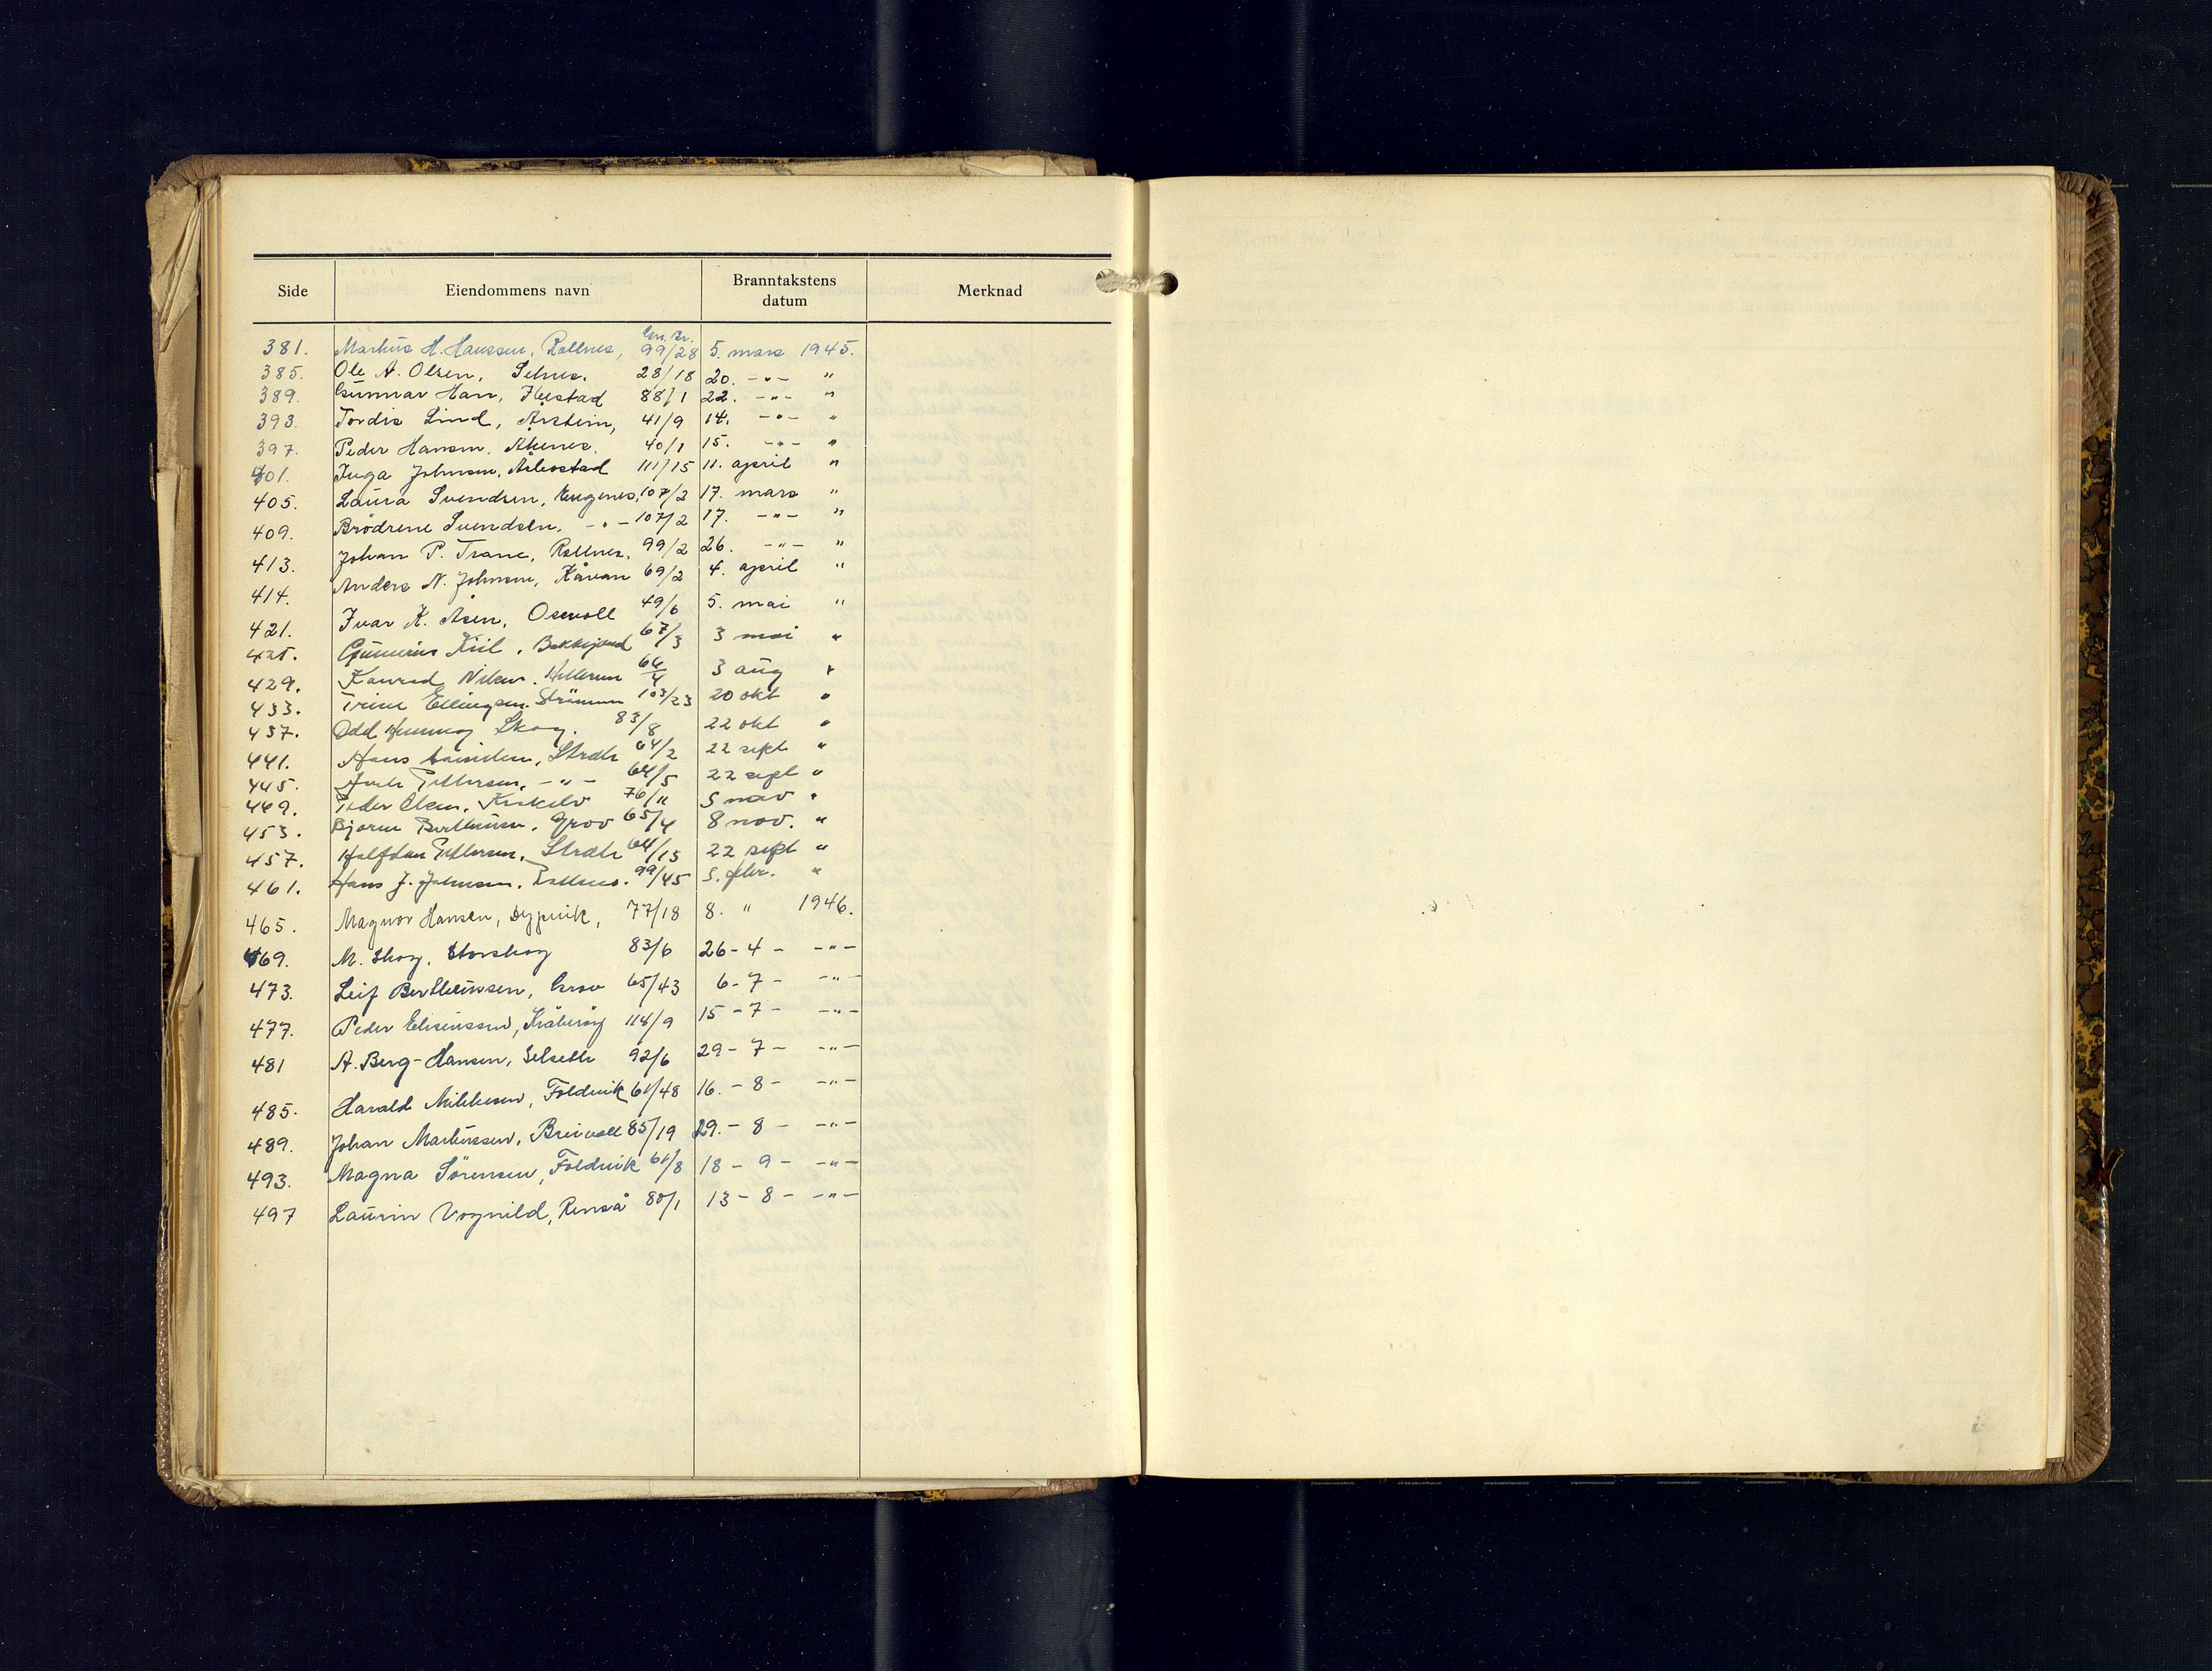 Side Eiendommens navn Branntakstens datum Merknad
Gnr. Br.
381. Markus H. Hanssen, Rollnes, 99/28 5. mars 1945.
385. Ole A. Olsen, Selnes. 28/18 20. -"- "
389. Gunnar Han, Ibestad 88/1 22. -"- "
393. Tordis Lind, Årstein, 41/9 14. -"- "
397. Peder Hansen, 40/1 15. -"- "
401. Inga Johnsen, Aakestad 111/15 11. april "
405. Laura Svendsen, Engenes, 107/2 17. mars "
409. Brödrene Svendsen, -"- 107/2 17. -"- "
413. Johan P. Trane, Rollnes, 99/2 26. -"- "
414. Anders N. Johnsen, Kåvan 69/2 4. april "
421. Ivar K. Åsen, Osevoll 49/6 5. mai "
425. Gunerius Kiil, Bekkejord 67/3 3 mai "
429. Konrad Nilsen, Hilleren 66/4 3 aug "
433. Trine Ellingsen. Strömmen 103/23 20 okt "
437. Odd Henning Skog. 83/8 22 okt "
441. Hans, Straete 64/2 22 sept "
445. Pettersen, -"- 64/5 22 sept "
449. Peder Olsen, 76/11 5 nov "
453. Bjarne Bertheusen, Grov 65/4 8 nov. "
457. Halfdan Pettersen, 64/15 22 sept "
461. Hans J. Johnsen, Rollnes. 99/45 5. febr. "
465. Magnor Hansen, Dypvik, 77/18 8. " 1946.
469. M. Skog, Storskog 83/6 26-4- -"-
473. Leif Bertheussen, Grov 65/43 6-7- -"-
477. Peder Eliseussen, Kråkerøy 114/9 15-7- -"-
481 A. Berg-Hansen, Selseth 92/6 29-7- -"-
485. Harald Mikkelsen, Foldvik 61/48 16.-8- -"-
489. Johan Markussen, Breivoll 85/19 29.-8- -"-
493. Magna Sörensen, Foldvik 61/8 18-9- -"-
497 Laurin Vognild, Renså 80/1 13-8- -"-